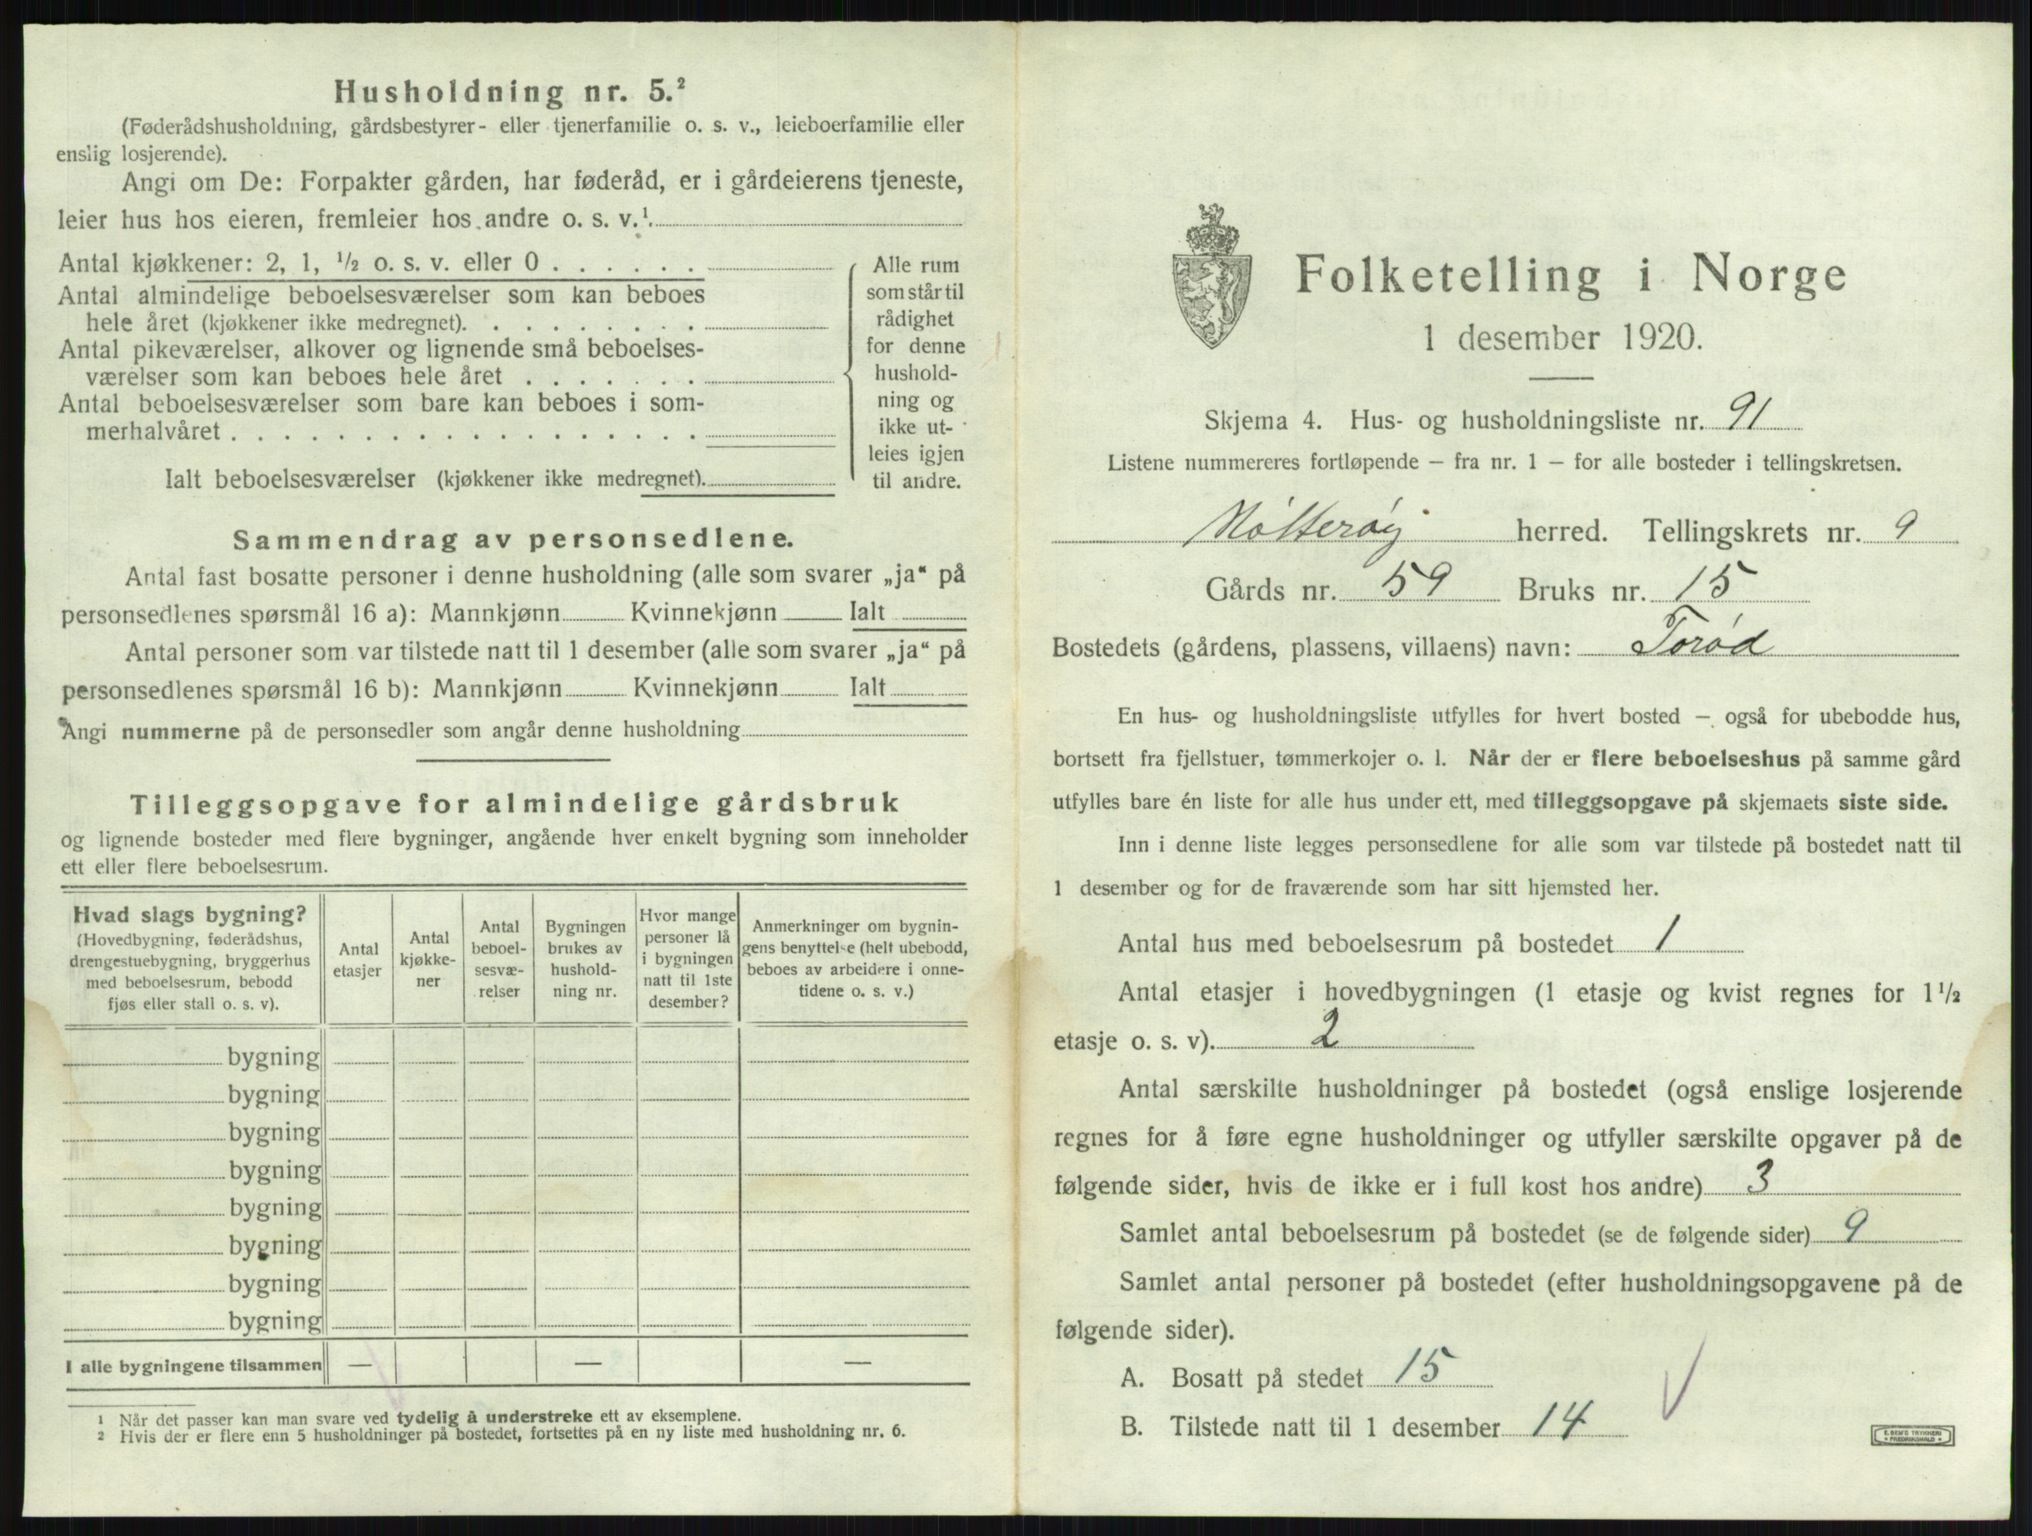 Husholdning nr. 5.²
(Føderådshusholdning, gårdsbestyrer- eller tjenerfamilie o. s. v., leieboerfamilie eller
enslig losjerende).
Angi om De: Forpakter gården, har føderåd, er i gårdeierens tjeneste,
leier hus hos eieren, fremleier hos andre o. s. v.¹
Antal kjøkkener: 2, 1, ½ o. s. v. eller 0 . . . . . .
Antal almindelige beboelsesværelser som kan beboes
hele året (kjøkkener ikke medregnet). . . . . . . . .
Antal pikeværelser, alkover og lignende små beboelses-
værelser som kan beboes hele året . . . . . . .
Antal beboelsesværelser som bare kan beboes i som-
merhalvåret . . . . . . . . . . . . . . . . . .
Ialt beboelsesværelser (kjøkkener ikke medregnet).
Alle rum
som står til
rådighet
for denne
hushold-
ning og
ikke ut-
leies igjen
til andre.
Sammendrag av personsedlene.
Antal fast bosatte personer i denne husholdning (alle som svarer „ja“ på
personsedlenes spørsmål 16 a): Mannkjønn Kvinnekjønn Ialt
Antal personer som var tilstede natt til 1 desember (alle som svarer „ja“ på
personsedlenes spørsmål 16 b): Mannkjønn Kvinnekjønn Ialt
Angi nummerne på de personsedler som angår denne husholdning
Tilleggsopgave for almindelige gårdsbruk
og lignende bosteder med flere bygninger, angående hver enkelt bygning som inneholder
ett eller flere beboelsesrum.
Hvad slags bygning?
(Hovedbygning, føderådshus,
drengestuebygning, bryggerhus
med beboelsesrum, bebodd
fjøs eller stall o. s. v).
Antal
etasjer
Antal
kjøkke-
ner
Antal
beboel-
sesvæ-
relser
Bygningen
brukes av
hushold-
ning nr.
Hvor mange
personer lå
i bygningen
natt til 1ste
desember?
Anmerkninger om bygnin-
gens benyttelse (helt ubebodd,
beboes av arbeidere i onne-
tidene o. s. v.)
bygning
bygning
bygning
bygning
bygning
bygning
bygning
bygning
I alle bygningene tilsammen — — —
¹ Når det passer kan man svare ved tydelig å understreke ett av eksemplene.
² Hvis der er flere enn 5 husholdninger på bostedet, fortsettes på en ny liste med husholdning nr. 6.
Folketelling i Norge
1 desember 1920.
Skjema 4. Hus- og husholdningsliste nr. 91
Listene nummereres fortløpende — fra nr. 1 — for alle bosteder i tellingskretsen.
Nøtterøy herred. Tellingskrets nr. 9
Gårds nr. 59 Bruks nr. 15
Bostedets (gårdens, plassens, villaens) navn: Torød
En hus- og husholdningsliste utfylles for hvert bosted — også for ubebodde hus,
bortsett fra fjellstuer, tømmerkojer o. l. Når der er flere beboelseshus på samme gård
utfylles bare én liste for alle hus under ett, med tilleggsopgave på skjemaets siste side.
Inn i denne liste legges personsedlene for alle som var tilstede på bostedet natt til
1 desember og for de fraværende som har sitt hjemsted her.
Antal hus med beboelsesrum på bostedet 1
Antal etasjer i hovedbygningen (1 etasje og kvist regnes for 1½
etasje o. s. v). 2
Antal særskilte husholdninger på bostedet (også enslige losjerende
regnes for å føre egne husholdninger og utfyller særskilte opgaver på de
følgende sider, hvis de ikke er i full kost hos andre) 3
Samlet antal beboelsesrum på bostedet (se de følgende sider) 9
Samlet antal personer på bostedet (efter husholdningsopgavene på de
følgende sider).
A. Bosatt på stedet 15
B. Tilstede natt til 1 desember 14
E. SEM'S TRYKKERI
FREDRIKSHALD